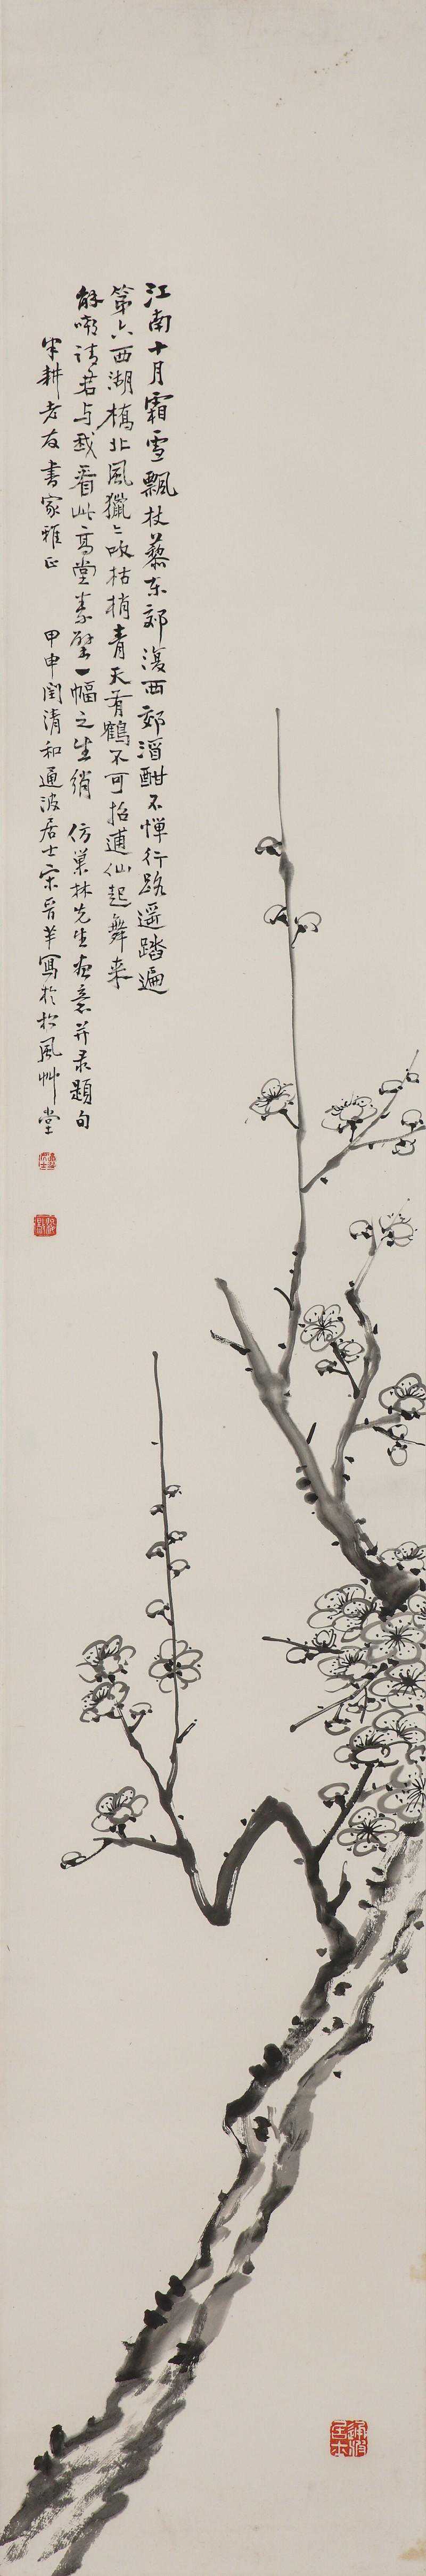 江南十月霜雪飄杖藜東郊復西郊酒酣不憚行路遥踏遍
第六西湖橋北風獵〻吹枯梢青天有鶴不可招逋仙起舞来
解嘲請君与我看此高堂素壁一幅之生綃 仿巢林先生画意并录題句
半耕老友書家雅正 甲申閏清和通波居士宋晋羊寫於松風艸堂
通波
居士